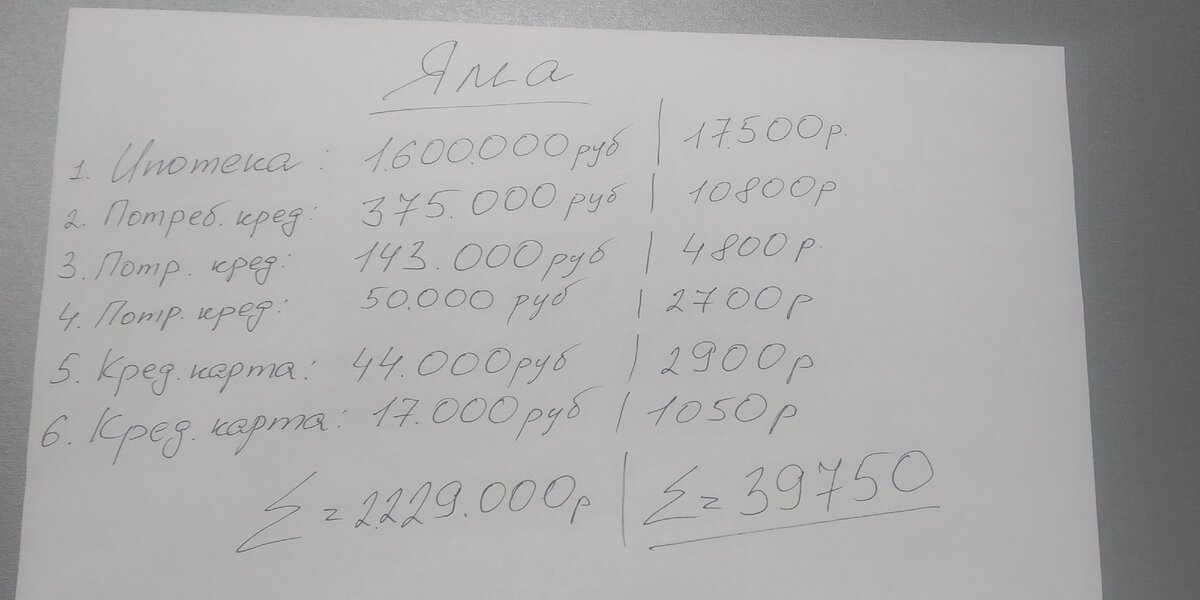 Яма
1. Ипотека: 1.600.000 руб | 17.500 р.
2. Потреб. кред: 375.000 руб | 10800 р
3. Потр. кред: 143.000 руб | 4800 р.
4. Потр. кред: 50.000 руб | 2700 р
5. Кред. карта: 44.000 руб | 2900 р
6. Кред. карта: 17.000 руб | 1050 р
∑ = 2.229.000 р | ∑ = 39750